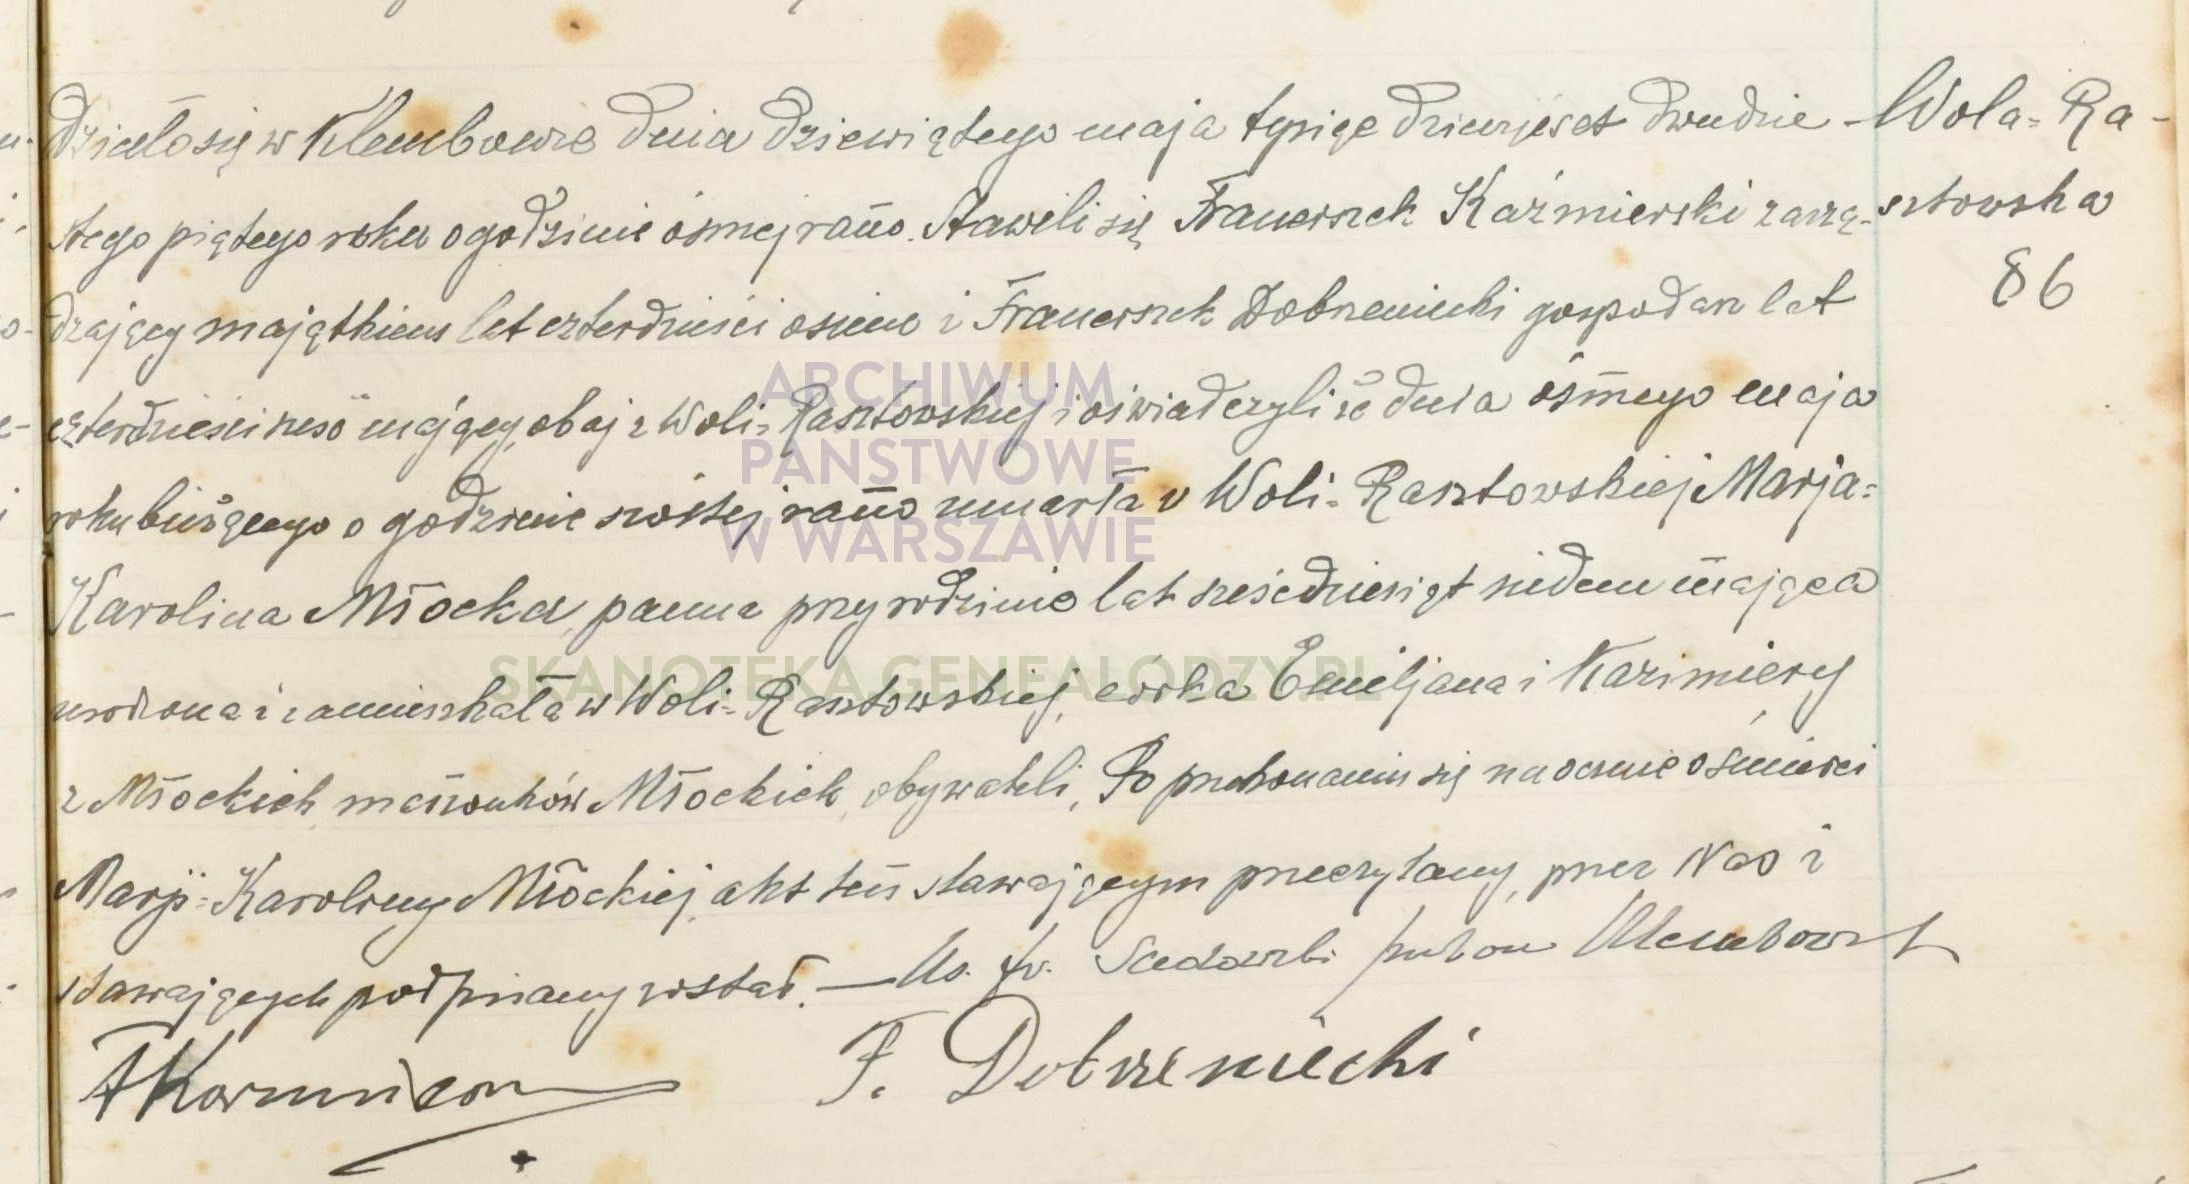 Działo się w Klembowie dnia dziewiątego maja tysiąc dziewięćset dwudzie-
stego piątego roku o godzinie ósmej rano. Stawili się Franciszek Kaźmierski zarzą-
dzający majątkiem lat czterdzieści osiem i Franciszek Dobrzeniecki gospodarz lat
czterdzieści sześć mający, obaj z Woli-Rasztowskiej i oświadczyli że dnia ósmego maja
roku bieżącego o godzinie szóstej rano umarła w Woli-Rasztowskiej Marja-
Karolina Młocka, panna przy rodzinie lat sześćdziesiąt siedem mająca
urodzona i zamieszkała w Woli-Rasztowskiej, córka Emiljana i Kazimiery
z Młockich, małżonków Młockich, obywateli, Po przekonaniu się naocznie o śmierci
Marji-Karoliny Młockiej, akt ten stawającym przeczytany, przez Nas i
stawających podpisany został. — Ks. Klembow
F. Dobrzeniecki
Wola-Ra-
sztowska
86
ARCHIWUM
PAŃSTWOWE
W WARSZAWIE
SKANOTEKA.GENEALODZY.PL